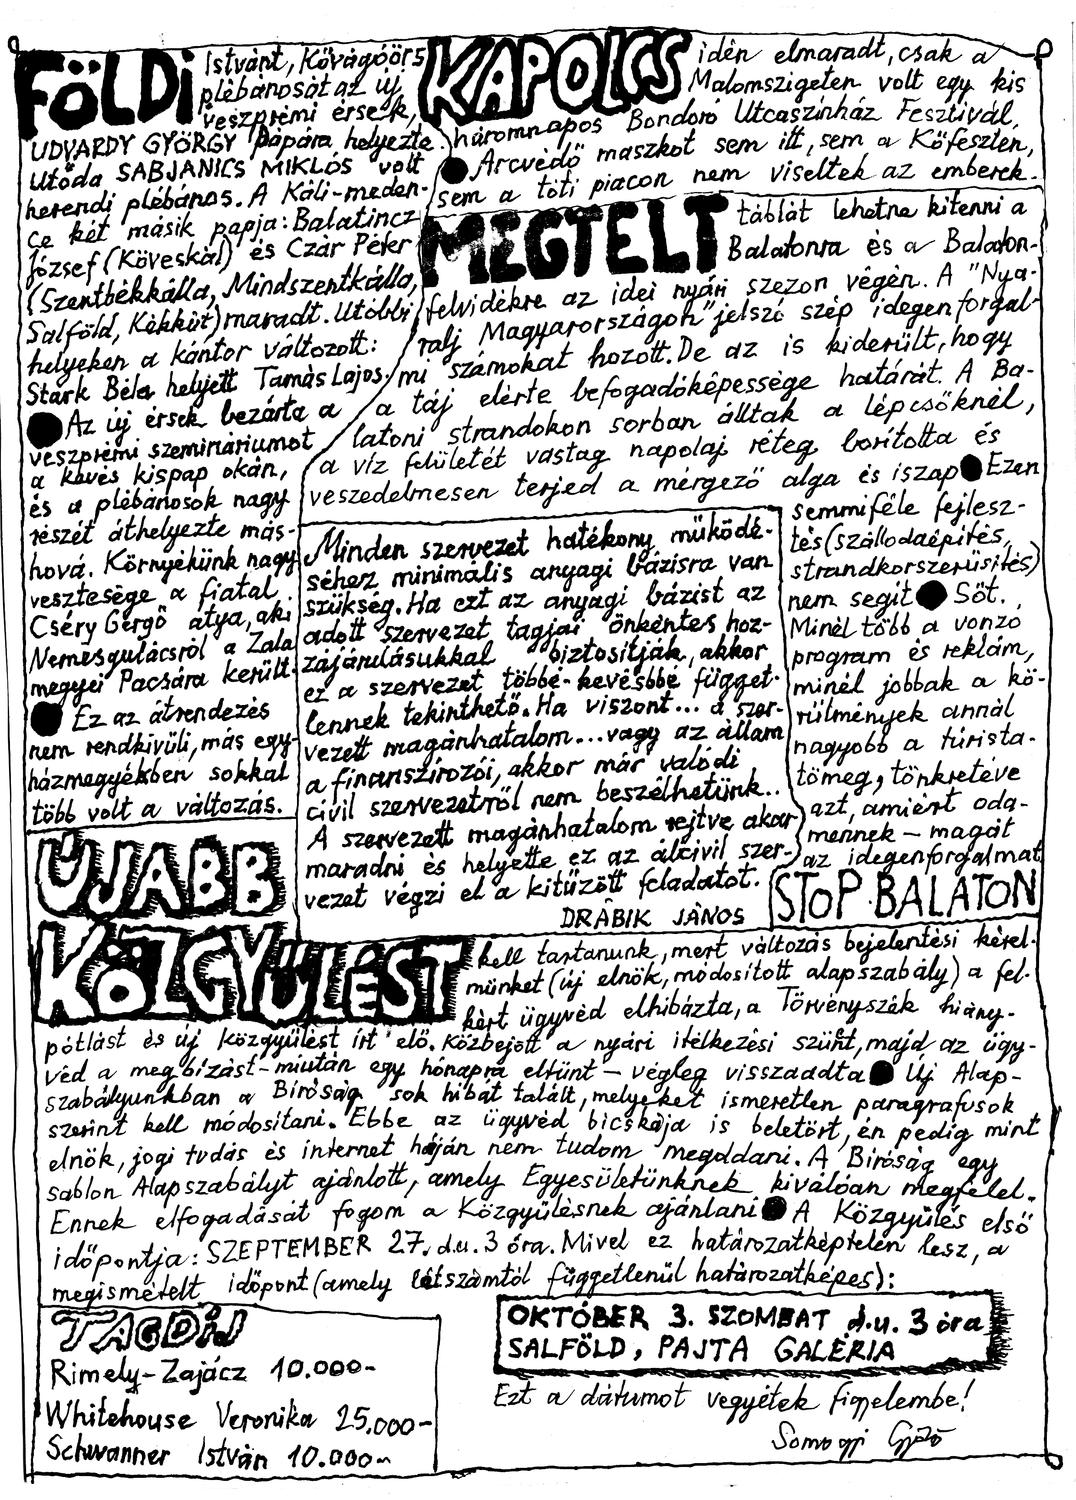 FÖLDI Istvánt, Kővágóörs
plébánosát az új
veszprémi érsek,
UDVARDY GYÖRGY Pápára helyezte.
Utóda SABJANICS MIKLÓS volt
herendi plébános. A Káli-meden-
ce két másik papja: Balatincz
József (Köveskál) és Czár Péter
(Szentbékkálla, Mindszentkálla,
Salföld, Kékkút) maradt. Utóbbi
helyeken a kántor változott:
Stark Béla helyett Tamás Lajos.
● Az új érsek bezárta a
veszprémi szemináriumot
a kevés kispap okán,
és a plébánosok nagy
részét áthelyezte más-
hová. Környékünk nagy
vesztesége a fiatal
Cséry Gergő atya, aki
Nemesgulácsról a Zala
megyei Pacsára került.
● Ez az átrendezés
nem rendkívüli, más egy-
házmegyékben sokkal
több volt a változás.
KAPOLCS idén elmaradt, csak a
Malomszigeten volt egy kis
háromnapos Bondoró Utcaszínház Fesztivál.
● Arcvédő maszkot sem itt, sem a Kőfeszten,
sem a tóti piacon nem viseltek az emberek.
MEGTELT táblát lehetne kitenni a
Balatonra és a Balaton-
felvidékre az idei nyári szezon végén. A "Nya-
ralj Magyarországon" jelszó szép idegenforgal-
mi számokat hozott. De az is kiderült, hogy
a táj elérte befogadóképessége határát. A Ba-
latoni strandokon sorban álltak a lépcsőknél,
a víz felületét vastag napolaj réteg borította és
veszedelmesen terjed a mérgező alga és iszap ● Ezen
semmiféle fejlesz-
tés (szállodaépítés,
strandkorszerűsítés)
nem segít ● Sőt.
Minél több a vonzó
program és reklám,
minél jobbak a kö-
rülmények annál
nagyobb a túrista-
tömeg, tönkretéve
azt, amiért oda-
mennek – magát
az idegenforgalmat
STOP BALATON
Minden szervezet hatékony működé-
séhez minimális anyagi bázisra van
szükség. Ha ezt az anyagi bázist az
adott szervezet tagjai önkéntes hoz-
zájárulásukkal biztosítják, akkor
ez a szervezet többé-kevésbbé függet-
lennek tekinthető. Ha viszont... a szer-
vezett magánhatalom...vagy az állam
a finanszírozói, akkor már valódi
civil szervezetről nem beszélhetünk..
A szervezett magánhatalom rejtve akar
maradni és helyette ez az álcivil szer-
vezet végzi el a kitűzött feladatot.
DRÁBIK JÁNOS
ÚJABB
KÖZGYŰLÉST kell tartanunk, mert változás bejelentési kérel-
münket (új elnök, módosított alapszabály) a fel-
kért ügyvéd elhibázta, a Törvényszék hiány-
pótlást és új közgyűlést írt elő. Közbejött a nyári ítélkezési szünt, majd az ügy-
véd a megbízást – miután egy hónapra eltűnt – végleg visszaadta ● Új Alap-
szabályunkban a Bíróság sok hibát talált, melyeket ismeretlen paragrafusok
szerint kell módosítani. Ebbe az ügyvéd bicskája is beletört, én pedig mint
elnök, jogi tudás és internet híján nem tudom megoldani. A Bíróság egy
sablon Alapszabályt ajánlott, amely Egyesületünknek kiválóan megfelel.
Ennek elfogadását fogom a Közgyűlésnek ajánlani ● A Közgyűlés első
időpontja: SZEPTEMBER 27. d.u. 3 óra. Mivel ez határozatképtelen lesz, a
megismételt időpont (amely létszámtól függetlenül határozatképes):
OKTÓBER 3. SZOMBAT d.u. 3 óra
SALFÖLD, PAJTA GALÉRIA
Ezt a dátumot vegyétek figyelembe!
Somogyi Győző
TAGDÍJ
Rimely-Zajácz 10.000-
Whitehouse Veronika 25.000-
Schwanner István 10.000-